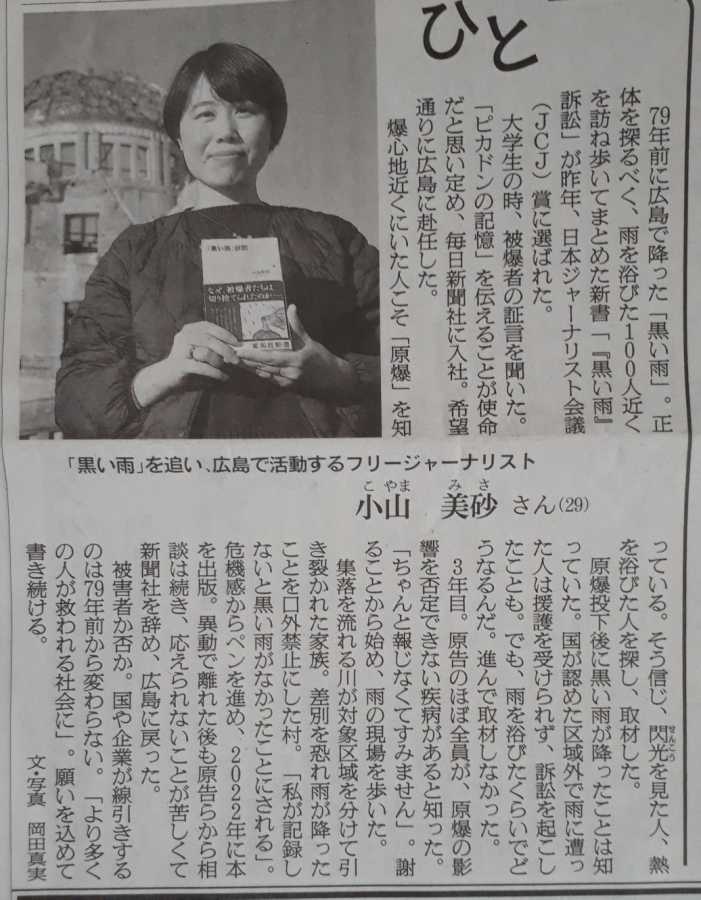 ひと
79年前に広島で降った「黒い雨」。正
体を探るべく、雨を浴びた100人近く
を訪ね歩いてまとめた新書「『黒い雨』
訴訟」が昨年、日本ジャーナリスト会議
(JCJ)賞に選ばれた。
大学生の時、被爆者の証言を聞いた。
「ピカドンの記憶」を伝えることが使命
だと思い定め、毎日新聞社に入社。希望
通りに広島に赴任した。
爆心地近くにいた人こそ「原爆」を知
「黒い雨」訴訟
なぜ、被爆者たちは
切り捨てられたのか
集英社新書
「黒い雨」を追い、広島で活動するフリージャーナリスト
こやま みさ
小山 美砂 さん(29)
っている。そう信じ、閃光を見た人、熱
せんこう
を浴びた人を探し、取材した。
原爆投下後に黒い雨が降ったことは知
っていた。国が認めた区域外で雨に遭っ
た人は援護を受けられず、訴訟を起こし
たことも。でも、雨を浴びたくらいでど
うなるんだ。進んで取材しなかった。
3年目。原告のほぼ全員が、原爆の影
響を否定できない疾病があると知った。
「ちゃんと報じなくてすみません」。謝
ることから始め、雨の現場を歩いた。
集落を流れる川が対象区域を分けて引
き裂かれた家族。差別を恐れ雨が降った
ことを口外禁止にした村。「私が記録し
ないと黒い雨がなかったことにされる」。
危機感からペンを進め、2022年に本
を出版。異動で離れた後も原告らから相
談は続き、応えられないことが苦しくて
新聞社を辞め、広島に戻った。
被害者か否か。国や企業が線引きする
のは79年前から変わらない。「より多く
の人が救われる社会に」。願いを込めて
書き続ける。
文・写真 岡田真実